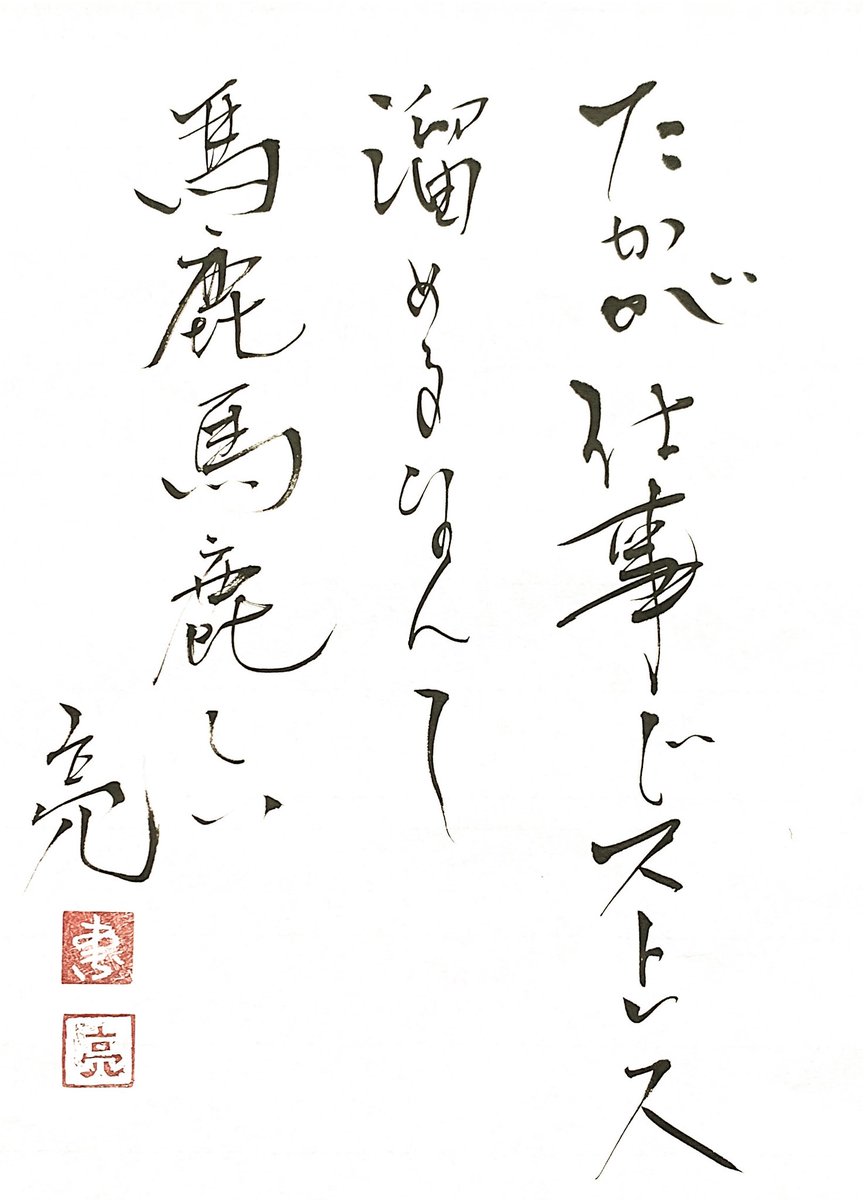 たかが仕事でストレス
溜めるなんて
馬鹿馬鹿しい
亮
亮